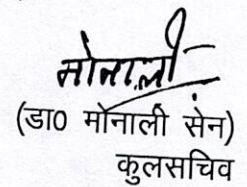 मोनाली
(डा0 मोनाली सेन)
कुलसचिव